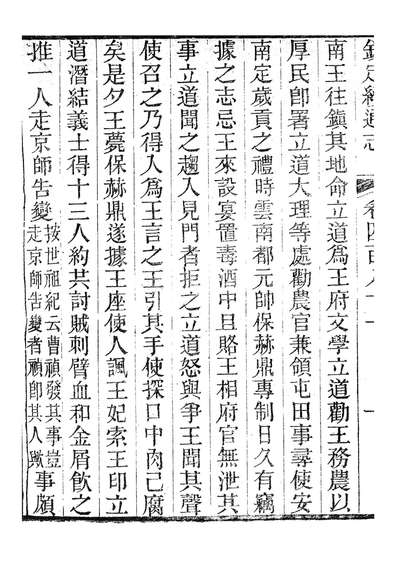 欽定續通志 卷四百八十一 一
南王往鎮其地命立道爲王府文學立道勸王務農以
厚民卽署立道大理等處勸農官兼領屯田事尋使安
南定歲貢之禮時雲南都元帥保赫鼎專制日久有竊
據之志忌王來設宴置毒酒中且賂王相府官無泄其
事立道聞之趨入見門者拒之立道怒與爭王聞其聲
使召之乃得入爲王言之王引其手使探口中肉已腐
矣是夕王薨保赫鼎遂據王座使人諷王妃索王印立
道潛結義士得十三人約共討賊刺臂血和金屑飲之
推一人走京師告變
按世祖紀云曹禎發其事豈
走京師告變者禎卽其人歟
事頗